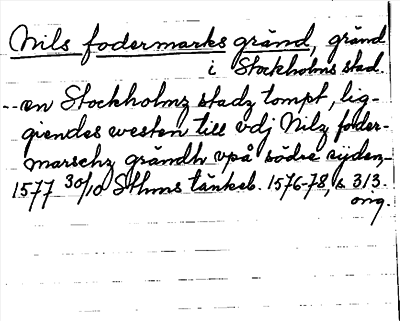 Nils fodermarks gränd, gränd
i Stockholms stad.
-- en Stockholmz stadz tompt, lig-
giendes westen till vdj Nilz foder-
marschz grändh vpå södre sijden--
1577 30/10 Sthms tänkeb. 1576-78, s. 313.
orig.